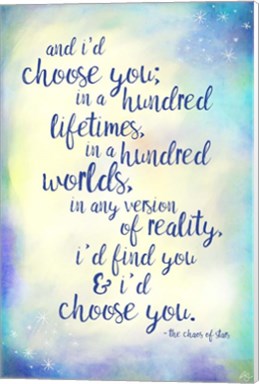 and i'd
choose you;
in a hundred
lifetimes,
in a hundred
worlds,
in any version
of reality,
i'd find you
& i'd
choose you.
- the chaos of stars